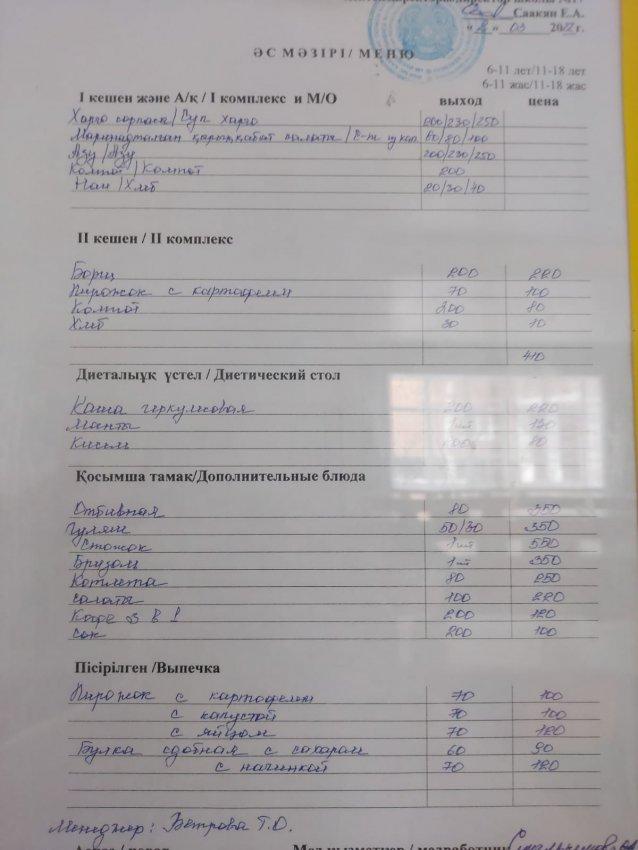 Саакян Е.А.
ӘС МӘЗІРІ/ МЕНЮ
6-11 лет/11-18 лет
6-11 жас/11-18 жас
І кешен және А/қ / І комплекс и М/О выход цена
Харчо сорпасы/Суп харчо 200/230/250
Маринадталған қырыққабат салаты / 60/80/100
Азу/Азу 200/230/250
Компот/Компот 200
Нан/Хлеб 20/30/40
ІІ кешен / ІІ комплекс
Борщ 200 220
Пирожок с картофелем 70 100
Компот 200 80
Хлеб 30 10
410
Диеталыұқ үстел / Диетический стол
Каша геркулесовая 200 220
Манты 1шт 130
Кисель 200 80
Қосымша тамақ/Дополнительные блюда
Отбивная 80 350
Гуляш 50/30 350
Стожок 1шт 550
Бризоль 1шт 350
Котлета 80 250
салаты 100 220
Кофе 3 в 1 200 120
сок 200 100
Пісірілген /Выпечка
Пирожок с картофелем 70 100
с капустой 70 100
с яйцом 70 120
Булка сдобная с сахаром 60 90
с начинкой 70 120
Менеджер: Ветрова Т.О.